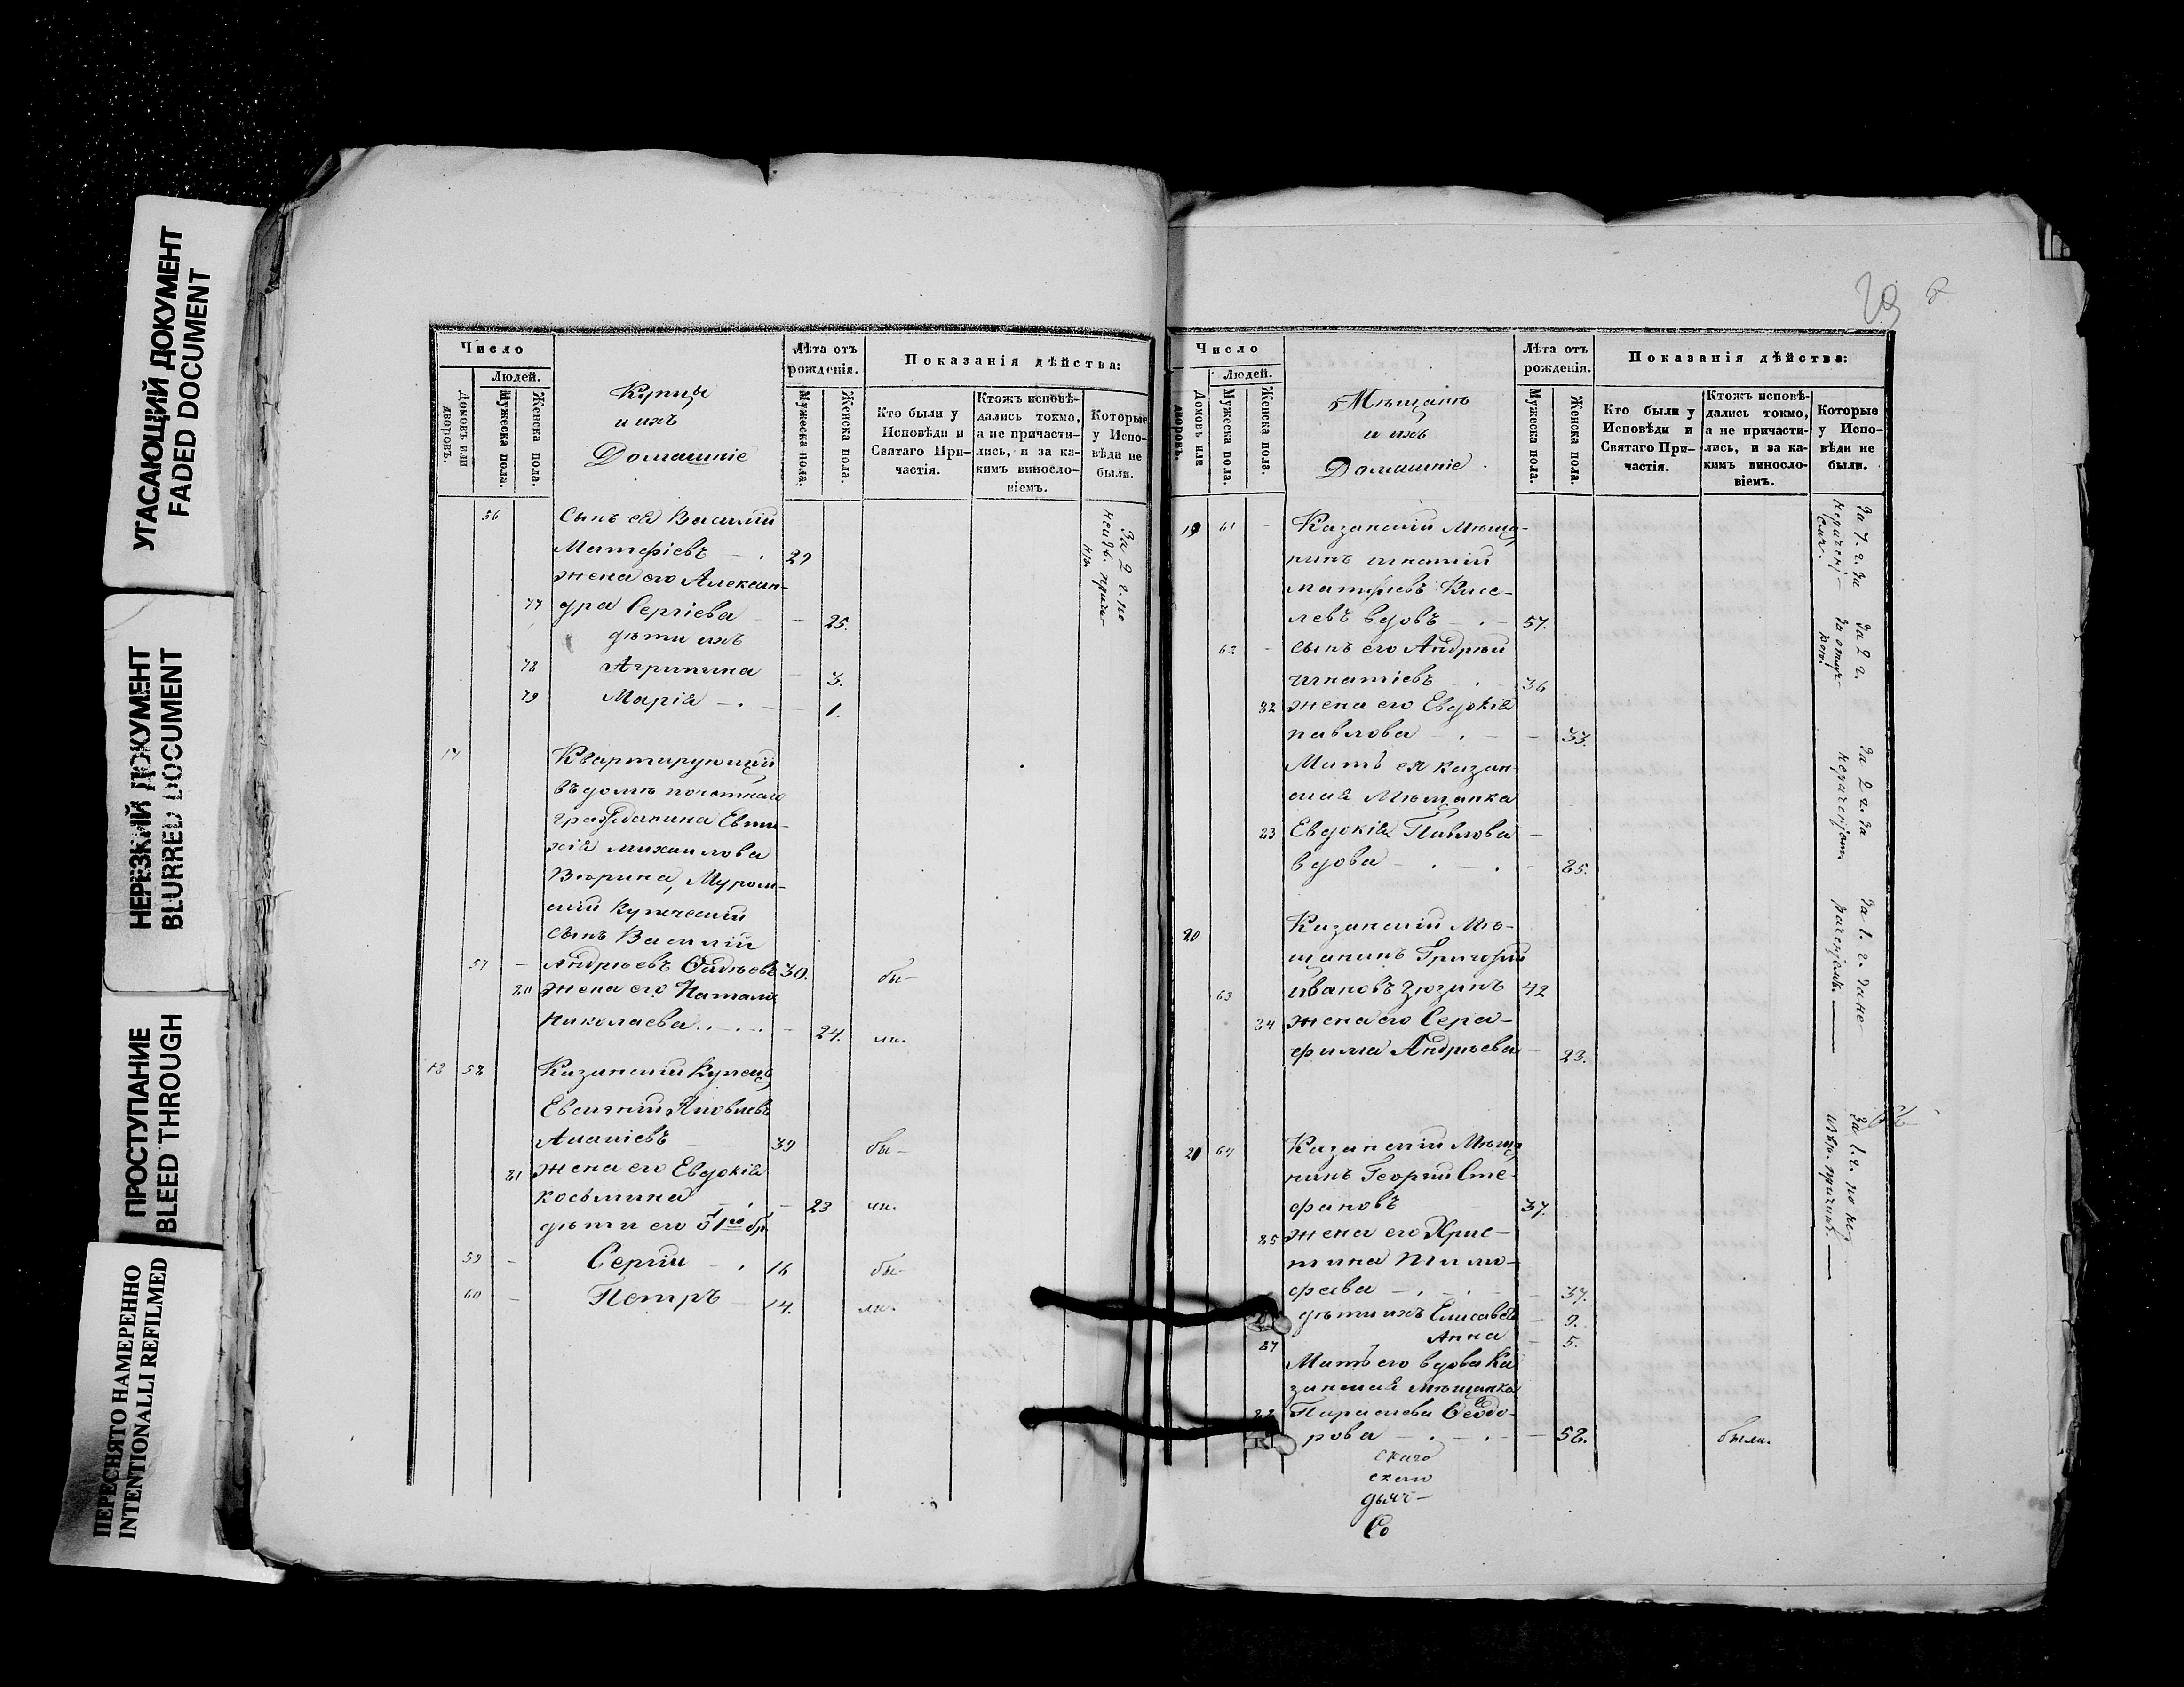 УГАСАЮЩИЙ ДОКУМЕНТ
FADED DOCUMENT
НЕРЕЗКИЙ ДОКУМЕНТ
BLURRED DOCUMENT
ПРОСТУПАНИЕ
BLEED THROUGH
ПЕРЕСНЯТО НАМЕРЕННО
INTENTIONALLI REFILMED
Число
Людей.
Домовъ или дворовъ.
Мужеска пола.
Женска пола.
Купцы
и ихъ
Домашніе
Лѣта отъ рожденія.
Мужеска пола.
Женска пола.
Показанія дѣйства:
Кто были у Исповѣди и Святаго При-частія.
Ктожъ исповѣ-дались токмо, а не причасти-лись, и за ка-кимъ винosло-віемъ.
Которые у Испо-вѣди не были.
56 Сынъ ея Василій
Матфіевъ 29
жена его Алексан-
77 дра Сергіева 25.
дѣти ихъ
78 Агрипина 3.
79 Марія 1.
За 2 г. по
неизв. причи-
нѣ
17 Квартирующій
въ домѣ почетнаго
гражданина Евти-
хія Михаилова
Муром-
скій купеческій
сынъ Василій
57 Андрѣевъ 30. бы-
80 жена его Наталія
Николаева 24. ли.
18 58 Казанскій Купецъ
Евсигній Яковлевъ
Ананіевъ 39 бы-
81 жена его Евдокія
Косьмина 23 ли.
дѣти его 1го бр.
59 Сергій 16 бы-
60 Петръ 14. ли.
29
Число
Людей.
Домовъ или дворовъ.
Мужеска пола.
Женска пола.
Мѣщанъ
и ихъ
Домашніе.
Лѣта отъ рожденія.
Мужеска пола.
Женска пола.
Показанія дѣйства:
Кто были у Исповѣди и Святаго При-частія.
Ктожъ исповѣ-дались токмо, а не причасти-лись, и за ка-кимъ виносло-віемъ.
Которые у Испо-вѣди не были.
19 61 Казанскій Мѣща-
нинъ Игнатій
Матфіевъ Кисе-
левъ вдовъ 57.
62 сынъ его Андрей
Игнатіевъ 36
82 жена его Евдокія
Павлова 33.
Мать ея казан-
ская Мѣщанка
83 Евдокія Павлова
вдова 85.
20 Казанскій Мѣ-
щанинъ Григорій
63 Ивановъ Зюзинъ 42
84 жена его Сера-
фима Андрѣева 23.
21 64 Казанскій Мѣща-
нинъ Георгій Сте-
фановъ 37.
85 жена его Хрис-
тина Тимо-
феева 37.
дѣти ихъ Елисавета 9.
87 Анна 5.
Мать его вдова Ка-
занская мѣщанка
88 Параскева Ѳеодо-
рова 58. были.